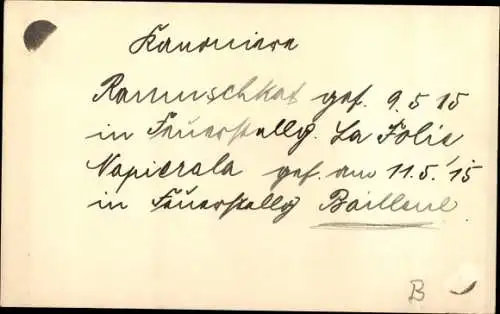 Kanoniere
Ramuschkat gef. 9.5 15
in Feuerstellg. La Folie
Napierala gef. am 11.5.'15
in Feuerstellg Bailleul
B